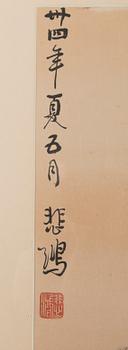 卅四年夏五月悲鴻